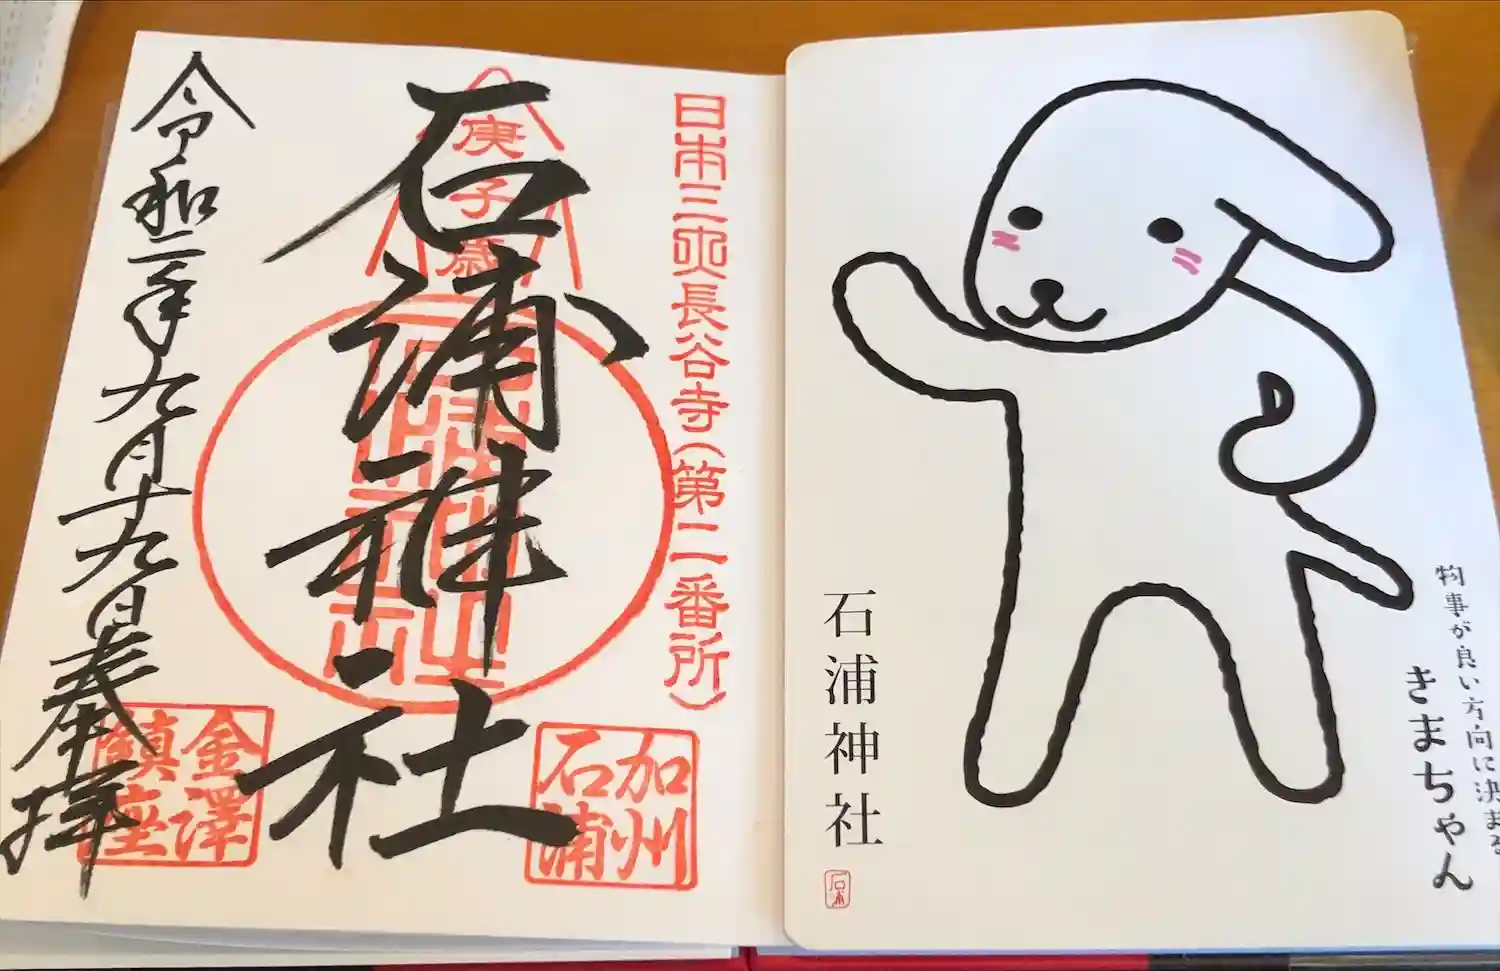 日本三大長谷寺(第二番所)
庚子歳
石浦神社
加州
石浦
金澤
鎮座
令和二年九月十九日奉拝
物事が良い方向に決まる
きまちゃん
石浦神社